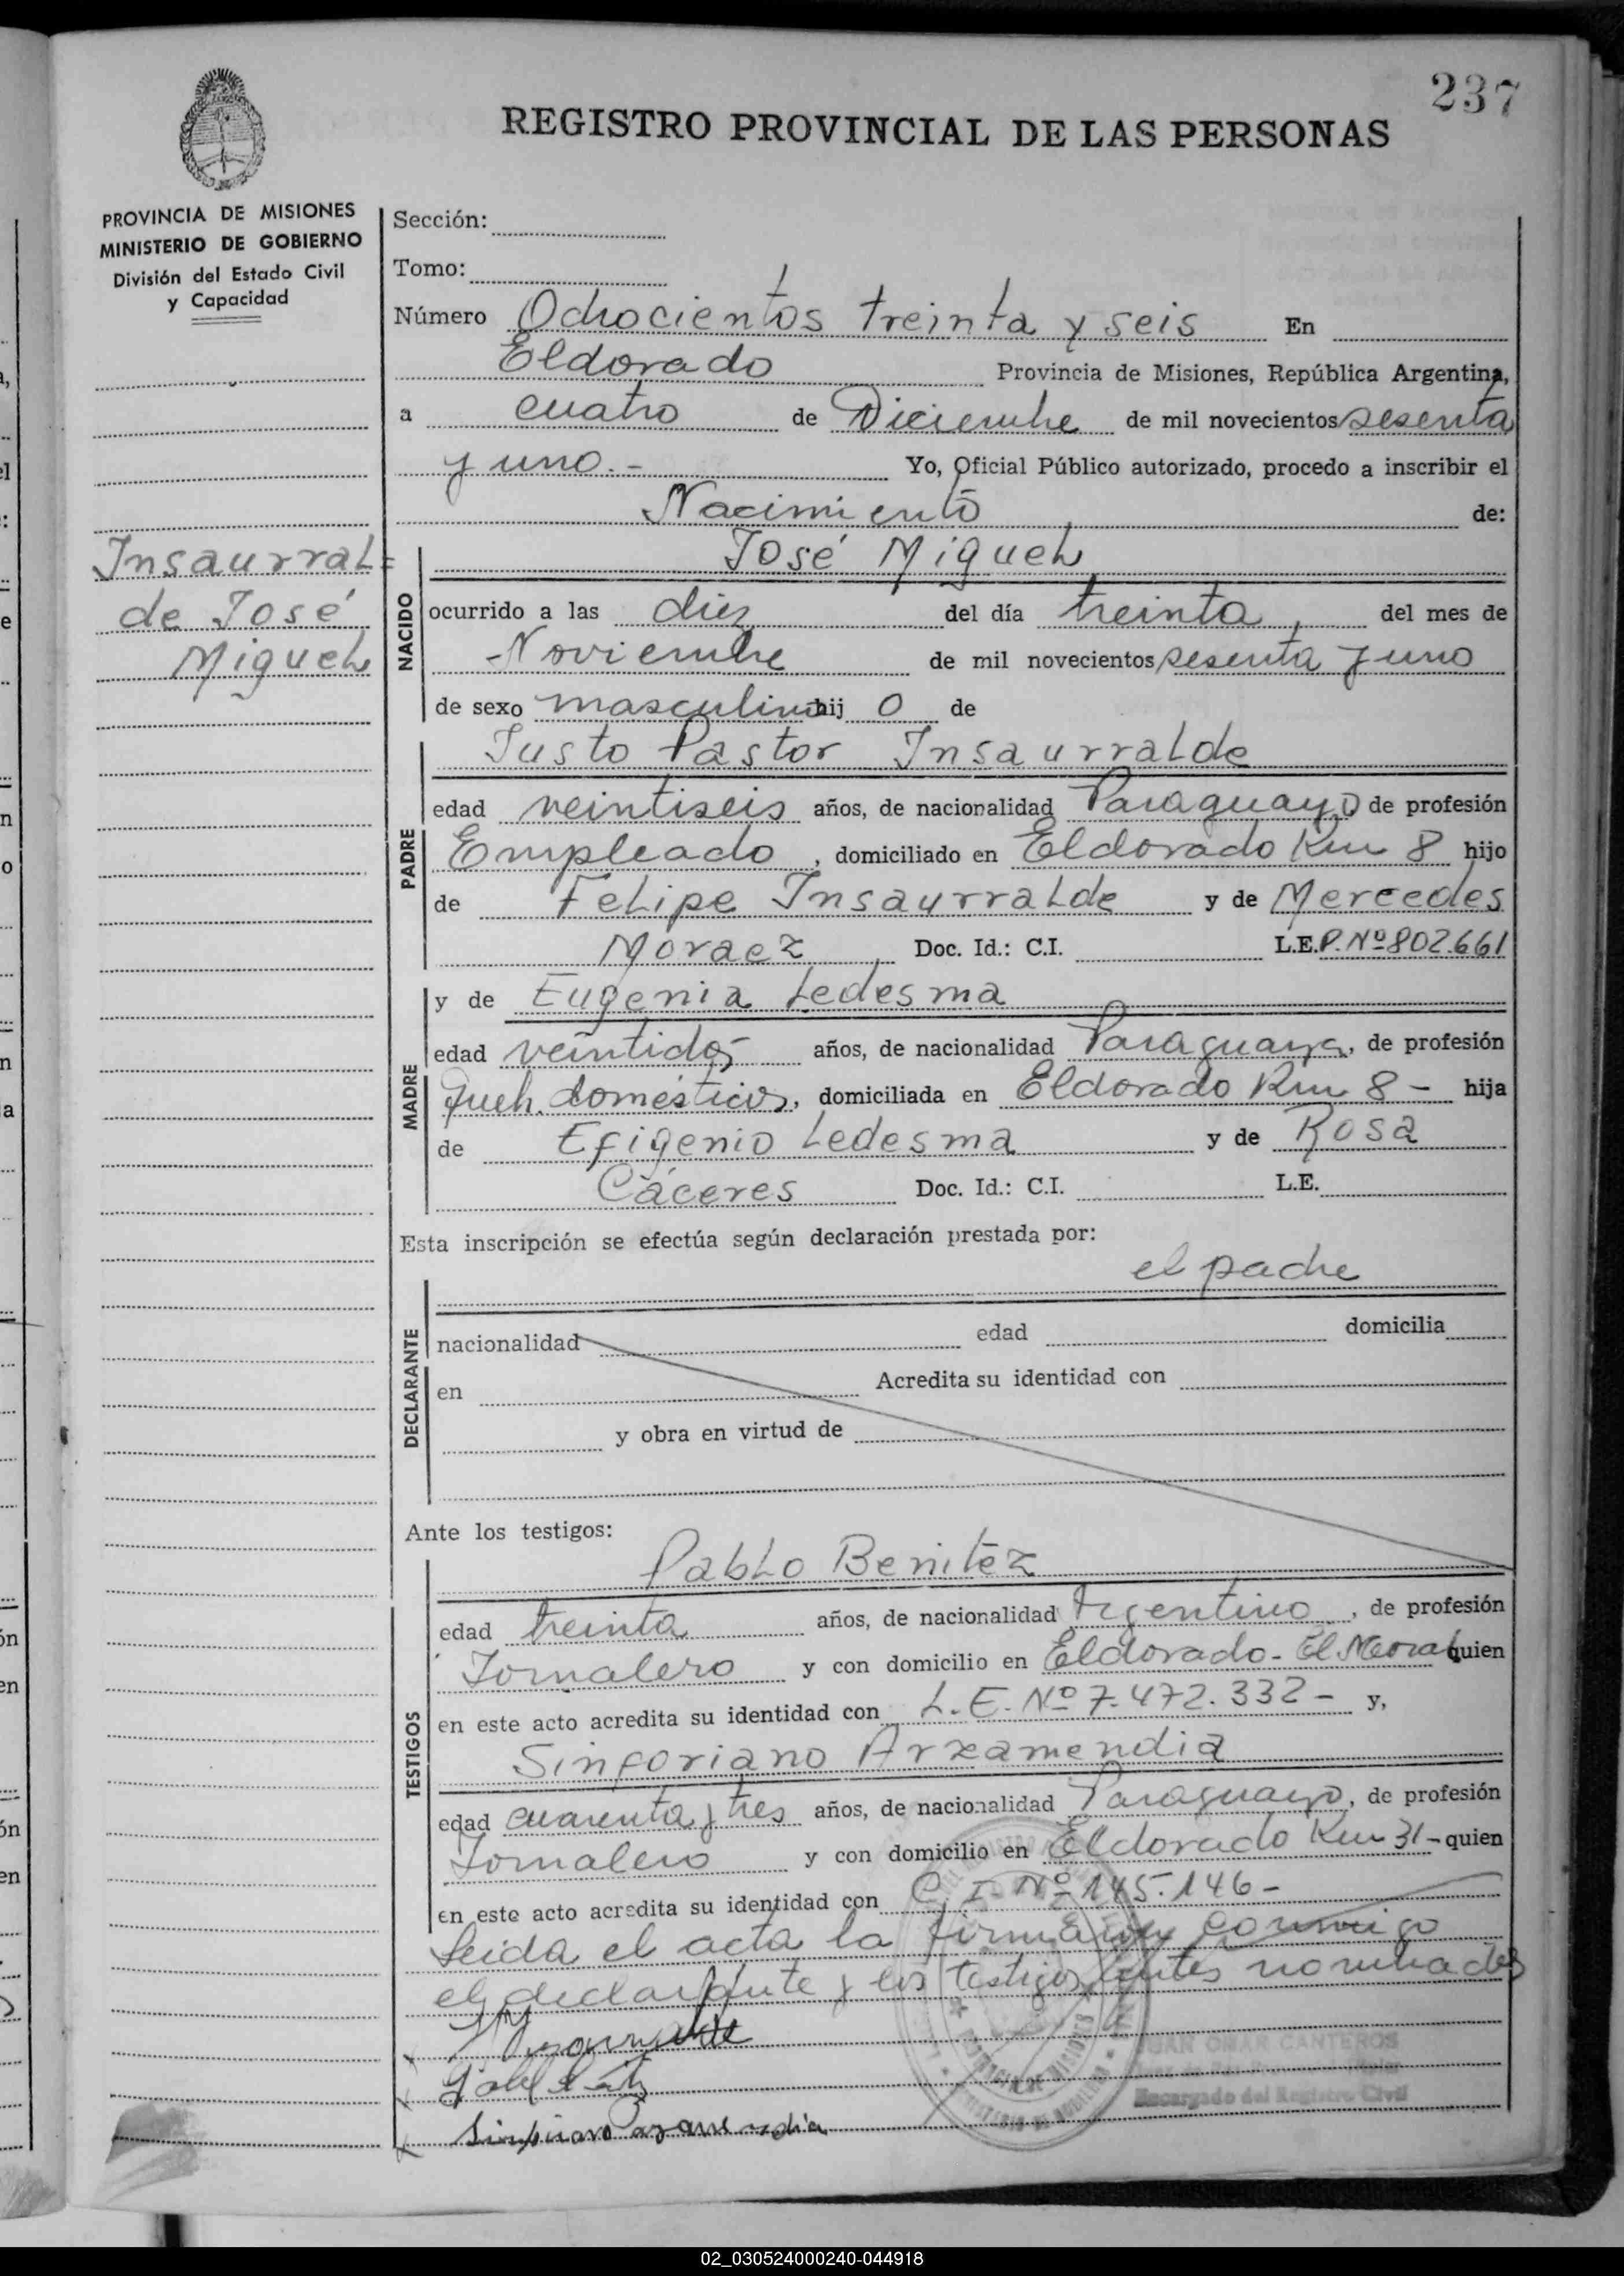 237
REGISTRO PROVINCIAL DE LAS PERSONAS
PROVINCIA DE MISIONES
MINISTERIO DE GOBIERNO
División del Estado Civil
y Capacidad
Insaurral=
de José
Miguel
Sección:
Tomo:
Número Ochocientos treinta y seis En
Eldorado Provincia de Misiones, República Argentina,
a cuatro de Diciembre de mil novecientos sesenta
y uno.- Yo, Oficial Público autorizado, procedo a inscribir el
Nacimiento de:
NACIDO
José Miguel
ocurrido a las diez del día treinta, del mes de
Noviembre de mil novecientos sesenta y uno
de sexo masculino hij o de
PADRE
Justo Pastor Insaurralde
edad veintiseis años, de nacionalidad Paraguayo de profesión
Empleado, domiciliado en Eldorado Km 8 hijo
de Felipe Insaurralde y de Mercedes
Moraez Doc. Id.: C.I. L.E. P. Nº 802.661
MADRE
y de Eugenia Ledesma
edad veintidos años, de nacionalidad Paraguaya, de profesión
Queh. domésticos, domiciliada en Eldorado Km 8 - hija
de Efigenio Ledesma y de Rosa
Cáceres Doc. Id.: C.I. L.E.
Esta inscripción se efectúa según declaración prestada por:
el padre
DECLARANTE
nacionalidad edad domicilia
en Acredita su identidad con
y obra en virtud de
Ante los testigos:
TESTIGOS
Pablo Benitez
edad treinta años, de nacionalidad Argentino, de profesión
Jornalero y con domicilio en Eldorado - El quien
en este acto acredita su identidad con L.E. Nº 7.472.332 - y,
Sinforiano Arzamendia
edad cuarenta y tres años, de nacionalidad Paraguayo, de profesión
Jornalero y con domicilio en Eldorado Km 31 - quien
en este acto acredita su identidad con C.I. Nº 145.146 -
Leida el acta la firman conmigo
el declarante y los testigos antes nombrados
JUAN OMAR CANTEROS
Encargado del Registro Civil
02_030524000240-044918